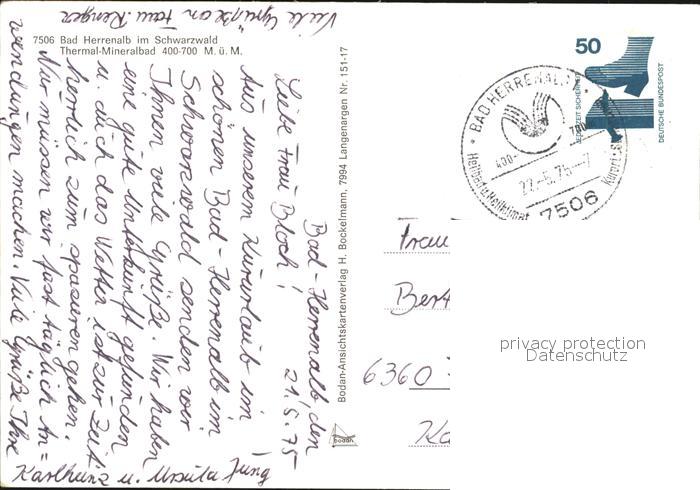 Viele Grüße an Frau Renger
7506 Bad Herrenalb im Schwarzwald
Thermal-Mineralbad 400-700 M. ü. M.
Bad-Herrenalb, den
21.5.75
Liebe Frau Bloch!
Aus unserem Kurzurlaub im
schönen Bad-Herrenalb im
Schwarzwald senden wir
Ihnen viele Grüße. Wir haben
eine gute Unterkunft gefunden
u. auch das Wetter ist zur Zeit
herrlich zum spazierengehen.
Nur müssen wir fast täglich An=
wendungen machen. Viele Grüße Ihre
Karlheinz u. Ursula Jung
Bodan-Ansichtskartenverlag H. Bockelmann, 7994 Langenargen Nr. 151-17
bodan
50
JEDERZEIT SICHERHEIT
DEUTSCHE BUNDESPOST
BAD HERRENALB
400-700m
22.-5.75-7
Heilbad u. Heilklimat. Kurort
7506
Frau
Bert
6360
Ka
privacy protection
Datenschutz